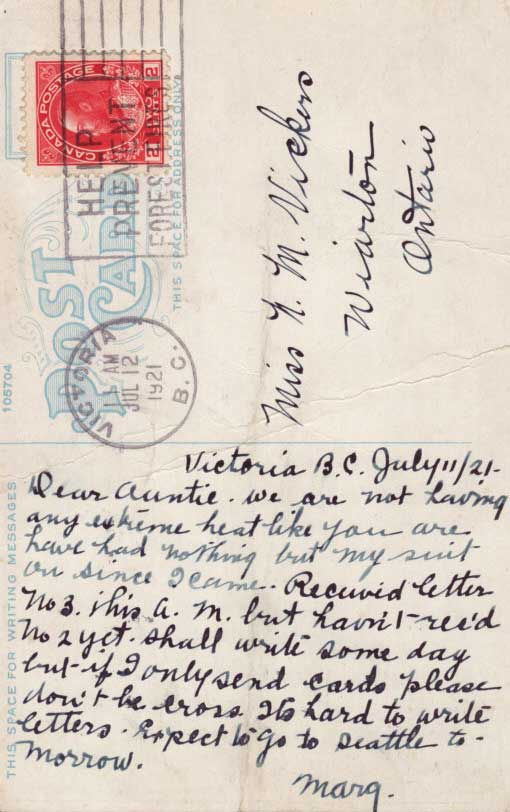 CANADA POSTAGE
2 TWO CENTS 2
HELP
PREVENT
FOREST FIRES
POST CARD
THIS SPACE FOR ADDRESS ONLY
VICTORIA
1 - AM
JUL 12
1921
B.C.
105704
Miss N. M. Vickers
Wiarton
Ontario
THIS SPACE FOR WRITING MESSAGES
Victoria B.C. July 11/21-
Dear Auntie. we are not having
any extreme heat like you are
have had nothing but my suit
on since I came. Recuvid letter
No 3. this A. M. but havn't rec'd
No 2 yet. shall write some day
but if I only send cards please
don't be cross. Its hard to write
letters. Expect to go to Seattle to-
morrow.
Marg.